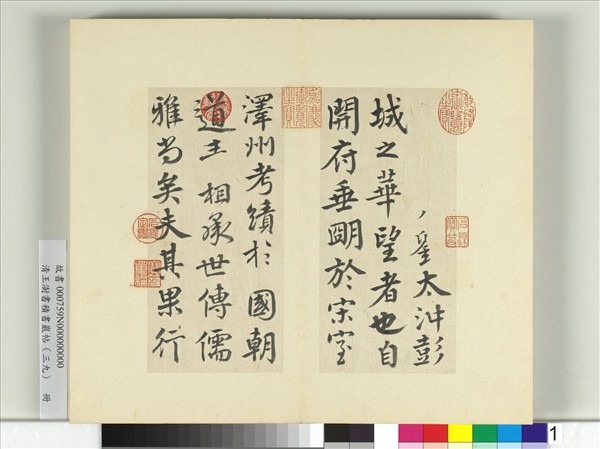 八皇太沖彭
城之華望者也自
開府垂明於宋室
澤州考績於國朝
道王相承世傳儒
雅尚矣夫其果行
故書 000759N000000000
清王澍書積書巖帖(三九) 冊
1